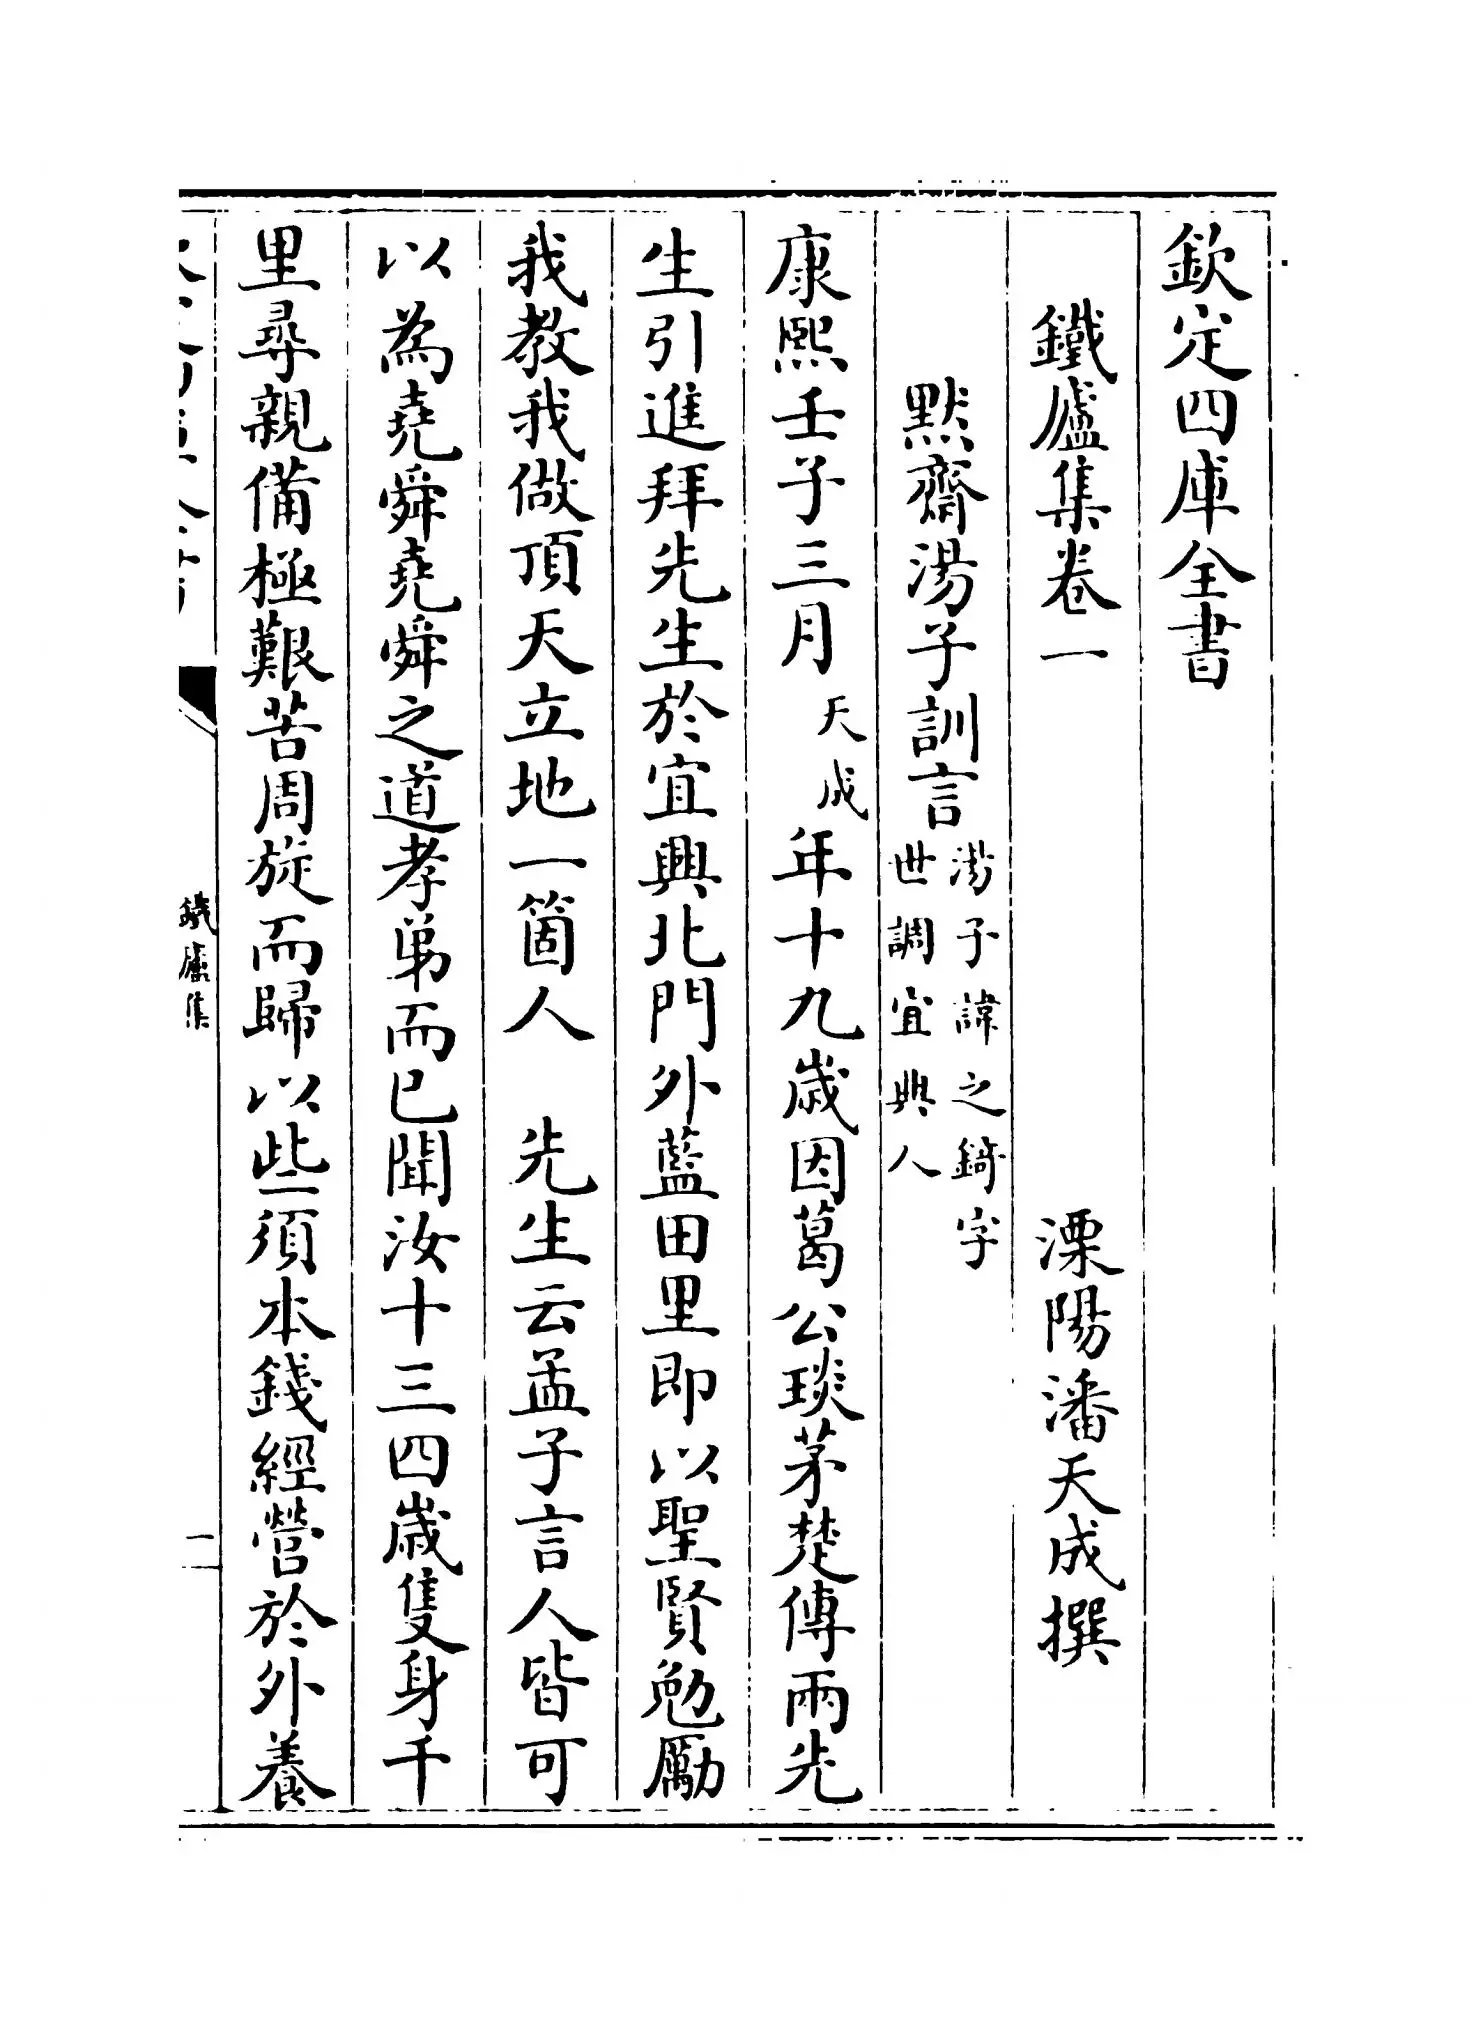 欽定四庫全書
鐵廬集卷一
溧陽潘天成撰
默齋湯子訓言
湯子諱之錡字
世調宜興人
康熙壬子三月天成年十九歲因葛公琰茅楚傳兩先
生引進拜先生於宜興北門外藍田里即以聖賢勉勵
我教我做頂天立地一箇人　先生云孟子言人皆可
以為堯舜堯舜之道孝弟而已聞汝十三四歲隻身千
里尋親備極艱苦周旋而歸以些須本錢經營於外養
鐵廬集
一